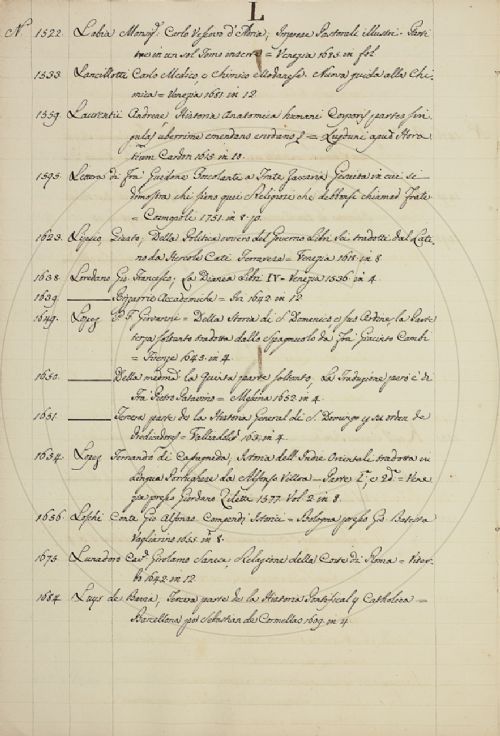 L
N° 1522. Labia Monsig. Carlo Vescovo d'Adria, Imprese Pastorali illustri. Parti
tre in un sol Tomo = Venezia 1685. in fol
1533. Lancillotti Carlo Medico e Chimico Modanese. Nuova guida alla Chi-
mica = Venezia 1681. in 12
1559. Laurentii Andreae Historia Anatomica humani Corporis partes sin-
gulas uberrime enodans = Lugduni apud Hora-
tium Cardon 1615. in 10.
1595. Lettera di Fra Guidone Zoccolante a Frate Zaccaria Gesuita in cui si
dimostra chi sieno quei Religiosi che debbonsi chiamar Frate
= Cosmopoli 1751. in 8.
1623. Lipsio Giusto, Della Politica ovvero del Governo Libri Sei tradotti dal Lati-
no da Hercole Cati Ferrarese = Venezia 1618. in 8
1638. Loredano Gio. Francesco, La Dianea Libri IV = Venezia 1536 in 4.
1639. ——— Bizzarrie Accademiche = In 1642 in 12
1649. Lopez P. F. Giovanni = Della Storia di S. Domenico e suo Ordine, la Parte
terza soltanto tradotta dallo Spagnuolo da Fra Giacinto Cambi
= Firenze 1645. in 4.
1650. ——— Della medma la Quinta parte soltanto, La Traduzione però è di
Fra Pietro Patavino = Messina 1652. in 4.
1651. ——— Tercera parte de la Historia General di S. Domingo y su orden de
Predicadores = Valladolid in 4.
1654. Lopez Fernando di Castagneda, Istoria dell'Indie Orientali tradotta in
Lingua Portughese da Alfonso Ulloa = Parte I.ª e 2.ª = Vene
zia presso Giordano Ziletti 1577. Vol. 2. in 8.
1656. Loschi Conte Gio Alfonso Compendi Istorici = Bologna presso Gio Batista
Vaglierino 1655. in 8.
1675. Lunadoro Cavr Girolamo Sanese, Relazione della Corte di Roma = Viter-
bo 1642. in 12
1684. Luys de Bavia, Tercera parte de la Historia Pontifical y Catholica =
Barcellona por Sebastian de Cormellas 1609. in 4